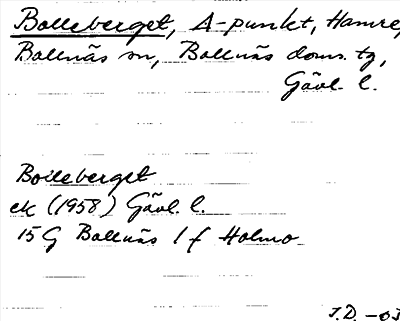 Bolleberget, Δ-punkt, Hamre,
Bollnäs sn, Bollnäs doms. tg,
Gävl. l.
Bolleberget
ek (1958) Gävl. l.
15G Bollnäs 1 f Holmo
J.D. -03